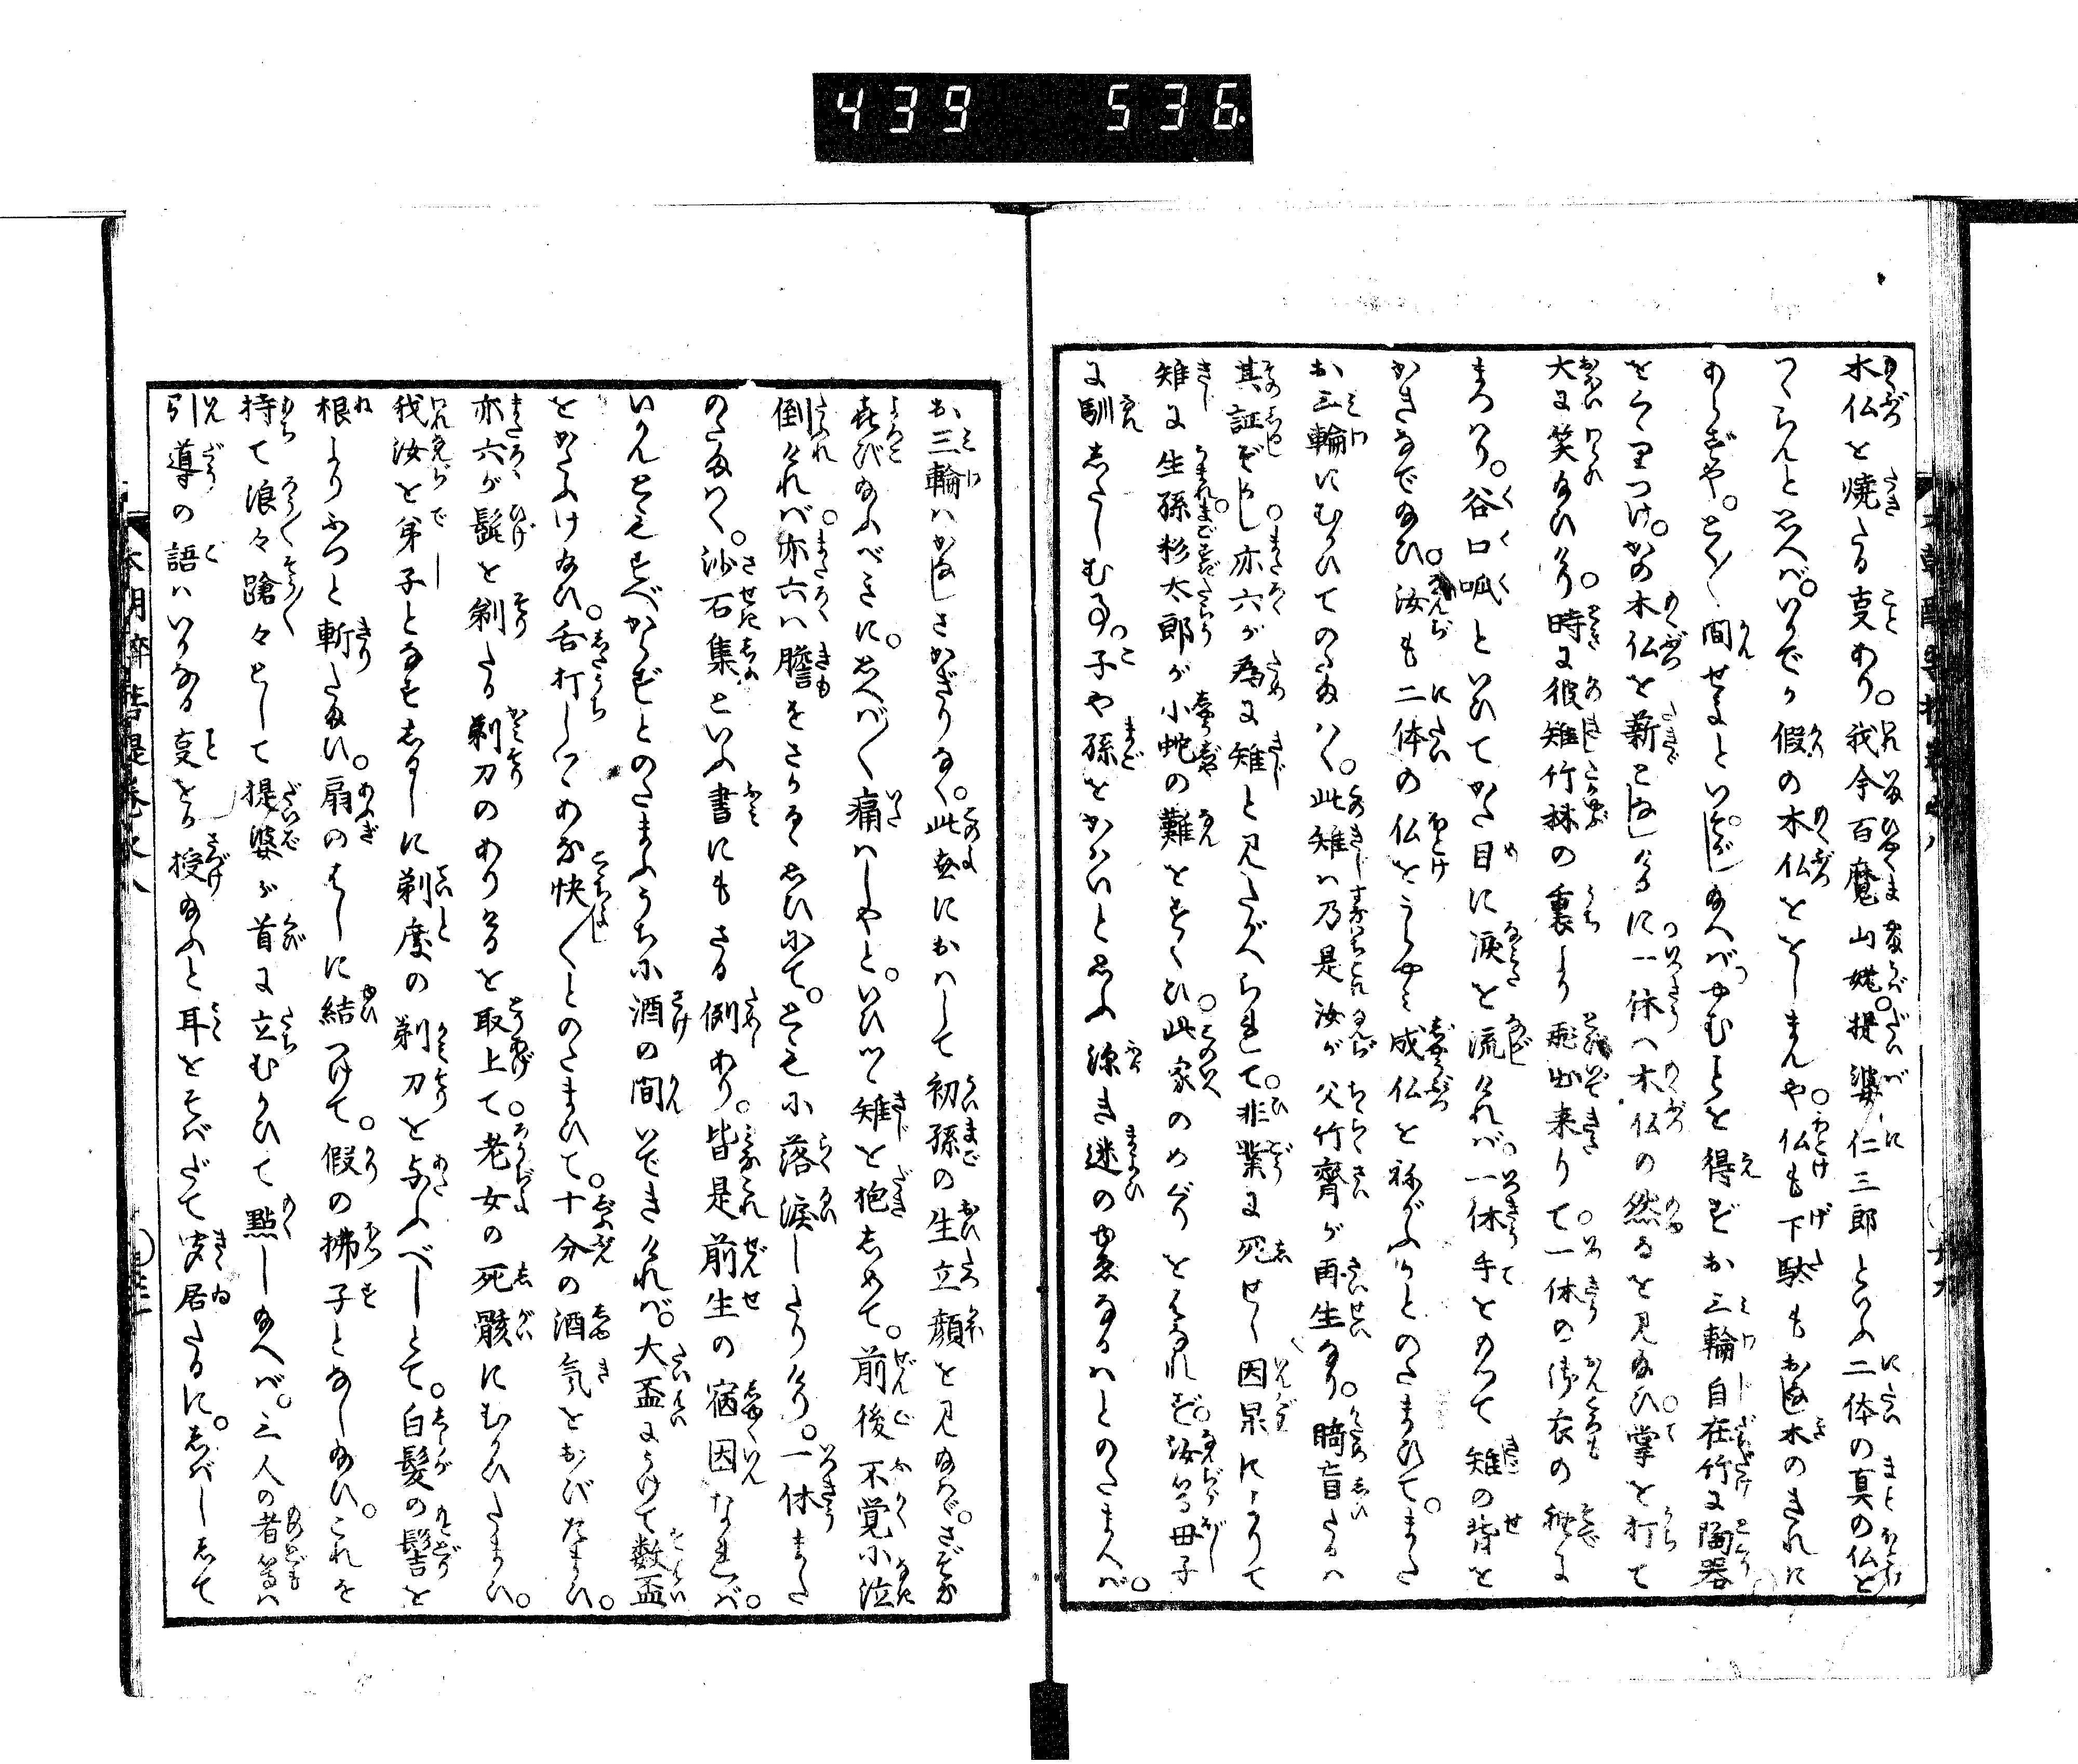 439 536
木仏を焼たる事あり。我今百魔山姥。提婆仁三郎といふ二体の真の仏を
つくらんと思へば。いかでか假の木仏ををしまんや。仏も下駄もおなじ木のきれに
あらずや。とく〳〵間せよといそがし給へばやむことを得ずお三輪自在竹に陶器
をくゝりつけ。かの木仏を薪となしけるに一休ハ木仏の然るを見給ひ。掌を打て
大に笑給ひけり。時に彼雉竹林の裏より飛出来りて。一休の御衣の袖に
まつハり。谷口呱といひてかた目に涙を流しければ。一休手をのべて雉の背を
かきなでゐひ。汝も二体の仏をうらやミ成仏を称がふかとのたまひて。また
お三輪にむかひてのたまハく。此雉ハ乃是汝が父竹斎が再生なり。䀹盲たるハ
其証ぞかし。亦六が為に雉と見たがへられて。非業に死せし因果によりて
雉に生。孫杉太郎が小蛇の難をすくひ。此家のめぐりをはなれず。汝等母子
に馴したしむる。子や孫をかハいと思ふ深き迷のゆゑなるハとのたまへバ。
お三輪ハかなしさかぎりなく。此世におハして初孫の生立顔を見給はゞ。さぞな
喜び給ふべきに。思へば〳〵痛ハしやと。いひつゝ雉を抱しめて。前後不覚に泣
倒ければ。亦六ハ膽をさかるゝ思ひにて。ともに落涙したりけり。一休また
のたまハく。沙石集といふ書にもさる例あり。皆是前生の宿因なれば。
いかんともすべからずとのたまふうちに酒の間いできければ。大盃にうけて数盃
をかたふけ給ひ。舌打しつゝあな快〳〵とのたまひて。十分の酒気をおびたまひ。
亦六が髭を剃たる剃刀のありけるを取上て。老女の死骸にむかひたまひ。
我汝を弟子となすしるしに剃度の剃刀を与ふべしとて。白髪の髻を
根よりふつと斬たまひ。扇のはしに結つけて。假の拂子となし給ひ。これを
持て浪々蹌々として提婆が首に立むかひて點し給へバ。三人の者等ハ
引導の語ハいかなる事をか授給ふと耳をそばだて聞居たるに。しばしして
本朝酔菩提巻之八